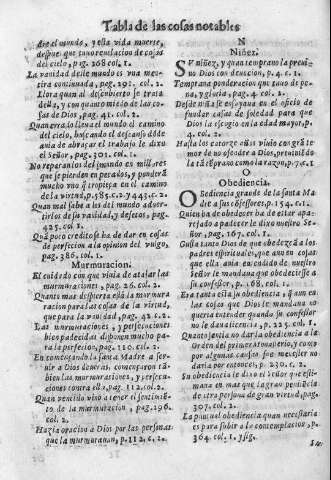 Tabla de las cosas notables
dre el mundo, y esta vida muerte,
despues que tuvo revelacion de cosas
del cielo, pag. 268 col. 1.
La vanidad deste mundo es una mentira
continuada, pag. 291. col. 2.
Llora quan al descubierto se trata
della, y con quanto miedo de las cosas
de Dios, pag. 41. col. 2.
Quan errado lleva el mundo el camino
del cielo, buscando el descanso donde
avia de abraçar el trabajo le dixo
el Señor, pag. 301. col. 1.
No reparan los del mundo en millares
que se pierden en pecados, y ponderã
mucho uno q tropieça en el camino
de la virtud, p. 385. c. 2. y 443. c. 2.
Quan mal sabe a los del mundo advertirlos
de su vanidad, y defetos, pag.
425. col. 1.
Quã poco credito se ha de dar en cosas
de perfecion a la opinion del vulgo,
pag. 386. col. 1.
Murmuracion.
El cuidado con que vivia de atajar las
murmuraciones, pag. 26. col. 2.
Quanto mas despierta está la murmuracion
para las cosas de la virtud
que para la vanidad, pag. 42. c. 2.
Las murmuraciones, y persecuciones
bien padecidas disponen mucho para
la perfecion, pag. 110. col. 2.
En començando la Santa Madre a servir
a Dios de veras, començaron tãbien
las murmuraciones, y persecuciones
contra ella, pag. 112. col. 2.
Quan vencido vino a tener el sentimiento
de la murmuracion, pag. 196.
col. 2.
Hazia oracion a Dios por las personas
que la murmuravan, p. 112. c. 2.
N
Niñez.
SV niñez, y quan temprano la previno
Dios con devocion, p. 4. c. 1.
Temprana ponderacion que tuvo de pena,
y gloria, pag. 4. col. 2.
Desde niña se ensayava en el oficio de
fundar casas de soledad para que
Dios la escogio en la edad mayor, p.
4. col. 2.
Hasta los catorze años vivio con gran temor
de no ofender a Dios, previniẽdola
tã tẽprano con la razon, p. 7. c. 1
O
Obediencia.
OBediencia grande de la santa Madre
a sus cõfessores, p. 154. c. 1.
Quien ha de obedecer ha de estar aparejado
a padecer le dixo nuestro Señor,
pag. 167. col. 1.
Gusta tanto Dios de que obedezcã a los
padres espirituales, que aun en cosas
que ella avia entendido de nuestro
Señor le mandava que obedeciesse a
su confessor, p. 168. col. 1.
Era tanta ella su obediencia, q aun en
las cosas que Dios le mandava no
queria entender quando su confessor
no le dava licencia, p. 225. col. 1.
Quanto sentia no darla obediencia a la
Orden del primer monasterio, y como
por algunas causas fue menester no
darla por entonces, p. 230. c. 2.
Su obediencia le dixo el Señor que estimava
en mas, que la gran penitencia
de otra persona de gran virtud, pag.
307. col. 2.
La puntual obediencia quan necessaria
es para subir a la contemplacion, p.
364. col. 1. y sig.